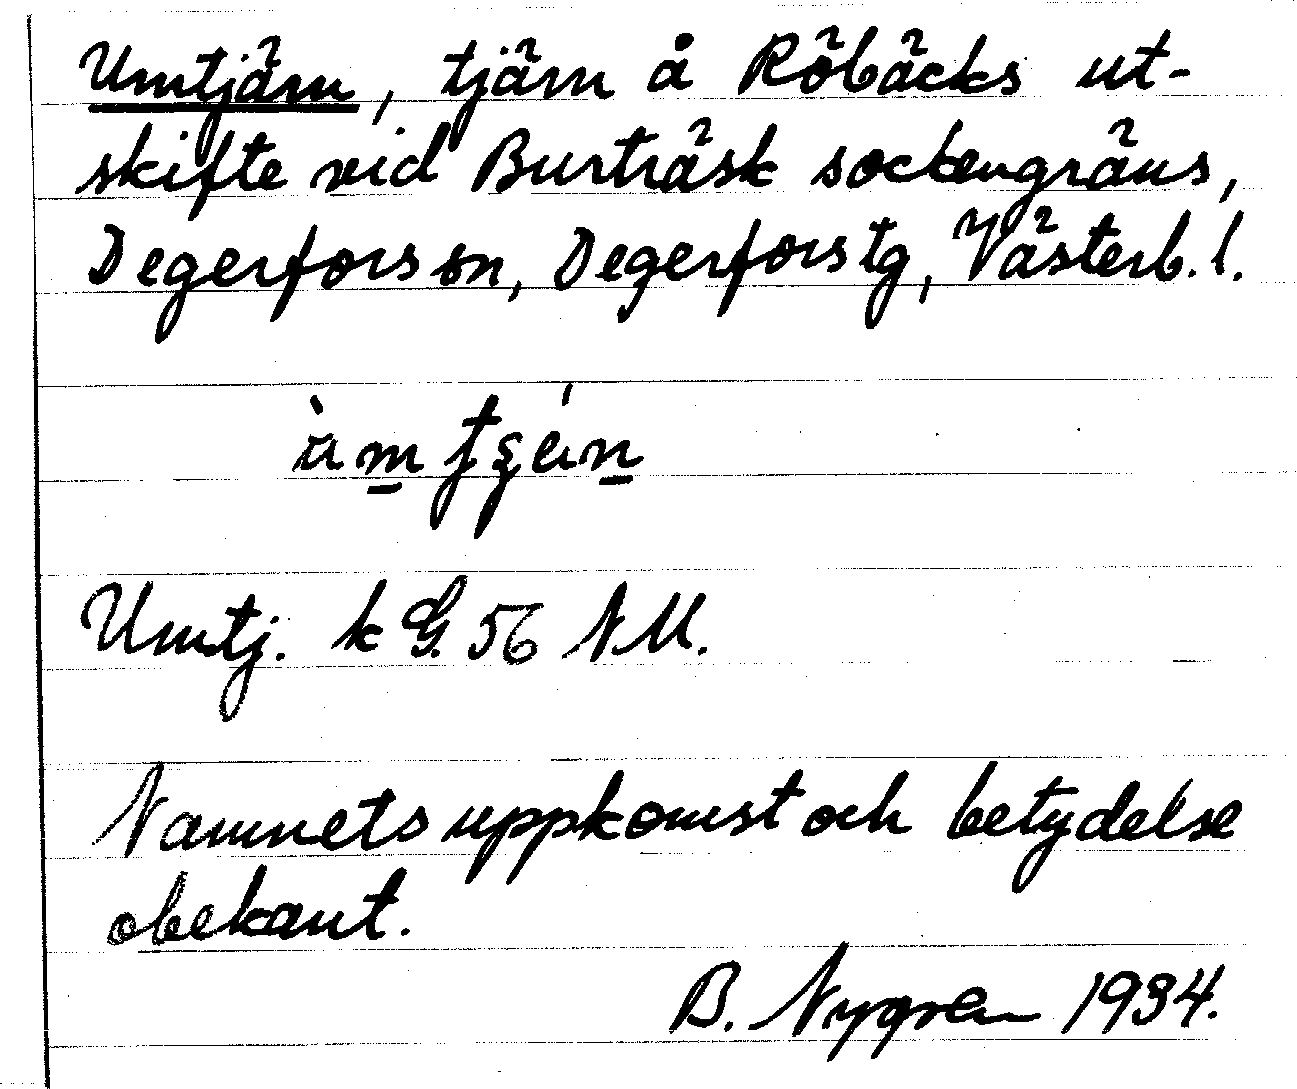 Umtjärn, tjärn å Röbäcks ut-
skifte vid Burträsk sockengräns,
Degerfors sn, Degerfors tg, Västerb. l.
Umtj. k G. 56 NM.
Namnets uppkomst och betydelse
obekant.
B. Nygren 1934.